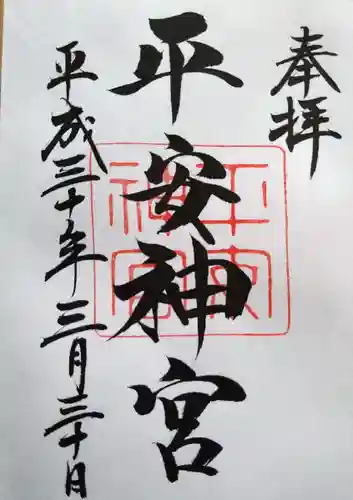 奉拝
平安神宮
平安
神宮
平成三十年三月三十日